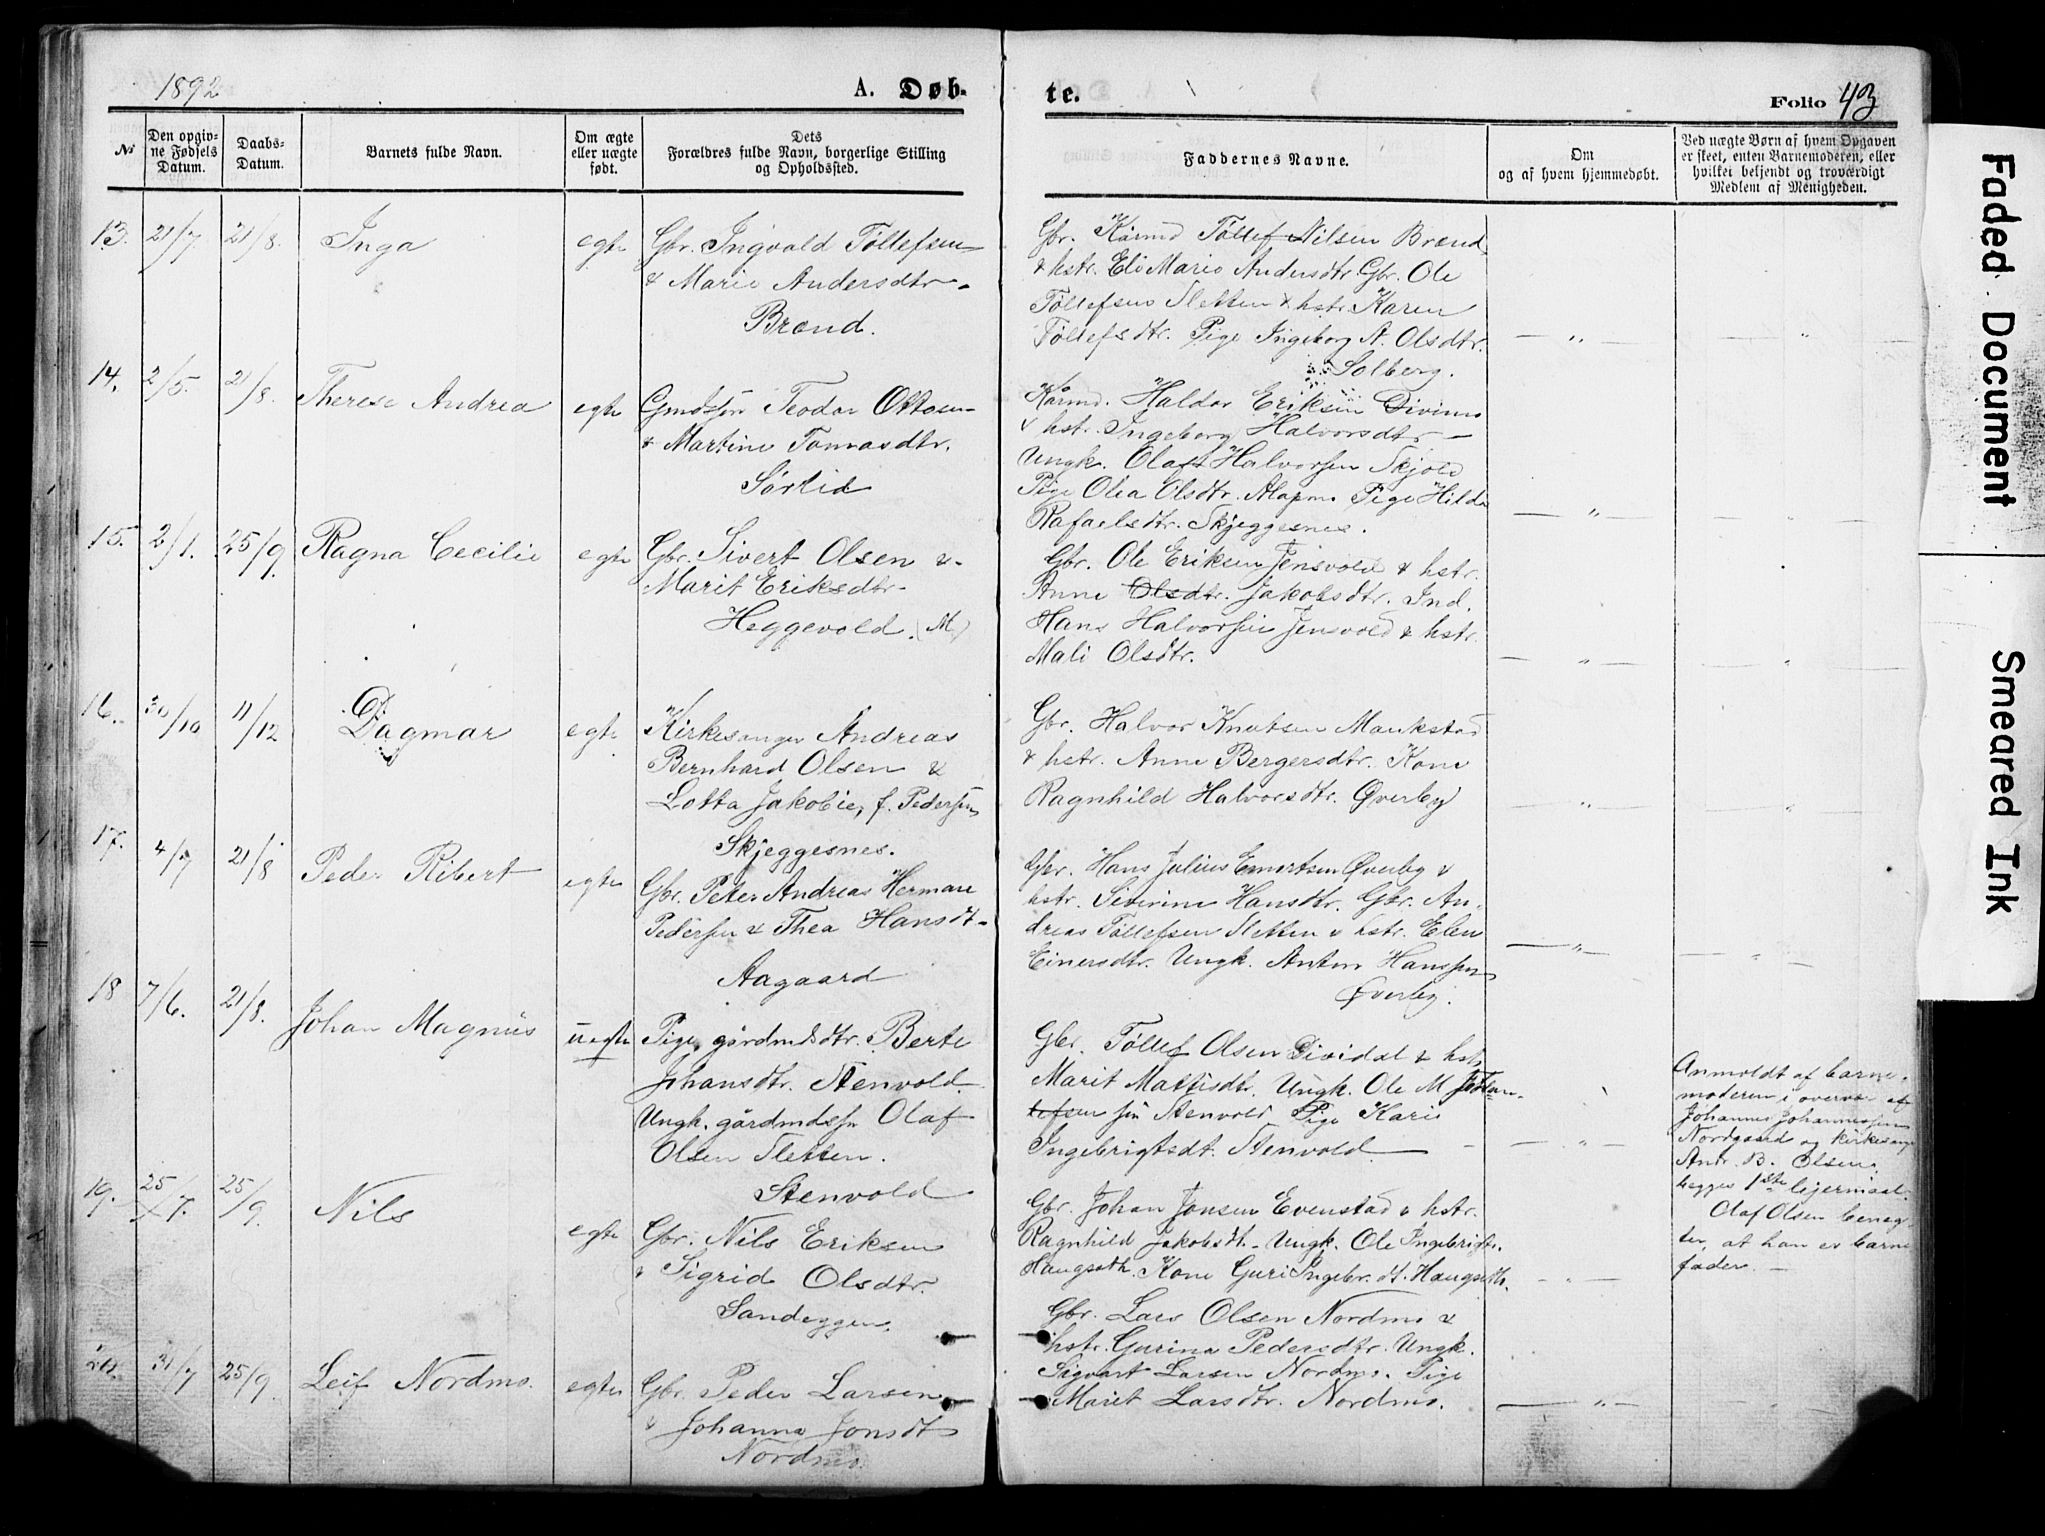 1892
A. Døb-
te.
Folio 43
№
Den opgiv-
ne Fødsels
Datum.
Daabs-
Datum.
Barnets fulde Navn.
Om ægte
eller uægte
født.
Dets
Forældres fulde Navn, borgerlige Stilling
og Opholdssted.
Faddernes Navne.
Om
og af hvem hjemmedøbt.
Ved uægte Børn af hvem Opgaven
er skeet, enten Barnemoderen, eller
hvilket bekjendt og troværdigt
Medlem af Menigheden.
13. 21/7 21/8. Inga egte
Gbr. Ingvald Tøllefsen
& Marie Andersdtr.
Brænd.
Gbr. Kårmd Tøllef Nilsen Brænd
& hstr. Eli Marie Andersdtr. Gbr. Ole
Tøllefsen Sletten & hstr. Karen
Tøllefsdtr. Pige Ingeborg A. Olsdtr.
Solberg.
14. 2/5. 21/8. Therese Andrea egte
Gmdssøn Teodor Ottosen
& Martine Tomasdtr.
Sørlid
Kårmd. Haldor Eriksen Divimo
& hstr. Ingeborg Halvorsdtr
Ungk. Olaf Halvorsen Skjold
Pige Olea Olsdtr. Pige Hilda
Rafaelsdtr. Skjeggesnes.
15. 2/1. 25/9. Ragna Cecilie egte
Gbr. Sivert Olsen &
Marit Eriksdtr.
Heggevold. (M)
Gbr. Ole Eriksen Jensvold & hstr.
Anne Olsdtr. Jakobsdtr. Ind.
Hans Halvorsen Jensvold & hstr.
Mali Olsdtr.
16. 30/10 11/12 Dagmar egte
Kirkesanger Andreas
Bernhard Olsen &
Lotta Jakobie, f. Pedersen
Skjeggesnes.
Gbr. Halvor Knutsen Moukstad
& hstr. Anne Bergersdtr. Kone
Ragnhild Halvorsdtr. Øverby
17. 4/7 21/8 Peder Ribert egte
Gbr. Peter Andreas Herman
Pedersen & Thea Hansdt.
Aagaard
Gbr. Hans Julius Emertsen Øverby &
hstr. Sivirine Hansdtr. Gbr. An-
dreas Tøllefsen Sletten & hstr. Elen
Einersdtr. Ungk. Anton Hanssen
Øverby.
18 7/6. 21/8. Johan Magnus uegte
Pige, gårdmdsdtr. Berte
Johansdtr. Stenvold
Ungk. gårdmdssn Olaf
Olsen Sletten.
Stenvold
Gbr. Tøllef Olsen Dividal & hstr.
Marit Mattisdtr. Ungk. Ole M
Stenvold Pige Kari
Ingebrigtsdt. Stenvold
Anmeldt af barne-
moderen i overvær af
Johannes Johannessen
Nordgaard og kirkesanger
Andr. B. Olsen,
begges 1ste leiermaal.
Olaf Olsen benæg-
ter, at han er barne
fader.
19. 25/7. 25/9. Nils egte
Gbr. Nils Eriksen
& Sigrid Olsdtr.
Sandeggen.
Gbr. Johan Jonsen Evenstad & hstr.
Ragnhild Jakobsdt. Ungk. Ole Ingebrigts.
Haugseth. Kone Guri Ingebr.dt. Haugseth.
20. 31/7 25/9. Leif Nordmo. egte
Gbr. Peder Larsen
& Johanna Jonsdt
Nordmo.
Gbr. Lars Olsen Nordmo &
hstr. Gurina Pedersdtr. Ungk.
Sigvart Larsen Nordmo. Pige
Marit Larsdtr. Nordmo.
Faded Document
Smeared Ink